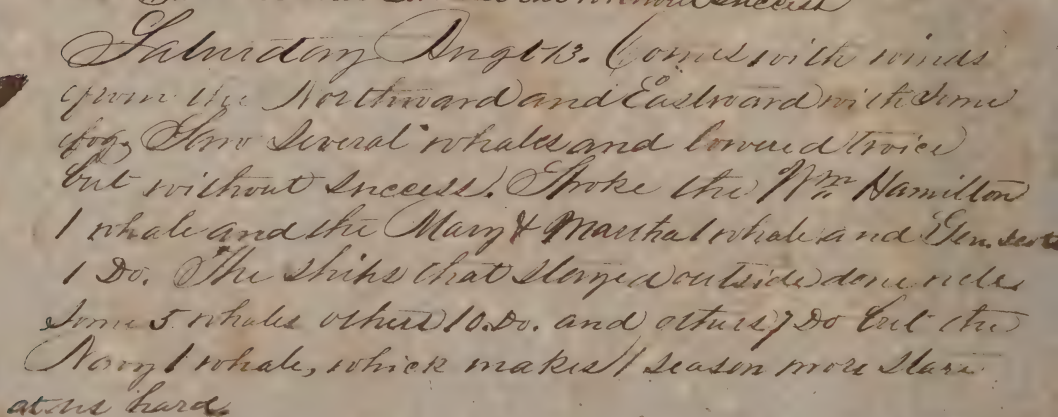 without success
Saturday Augt 13. Comes with winds
from the Northward and Eastward with some
fog. Saw several whales and lowered twice
but without success. Spoke the Wm Hamilton
1 whale and the Mary & Martha 1 whale and Gen. Scott
1 Do. The ships that stayed outside done
some 5 whales others 10. Do. and others 7 Do but the
Navy 1 whale, which makes 1 season more stare
at us hard.